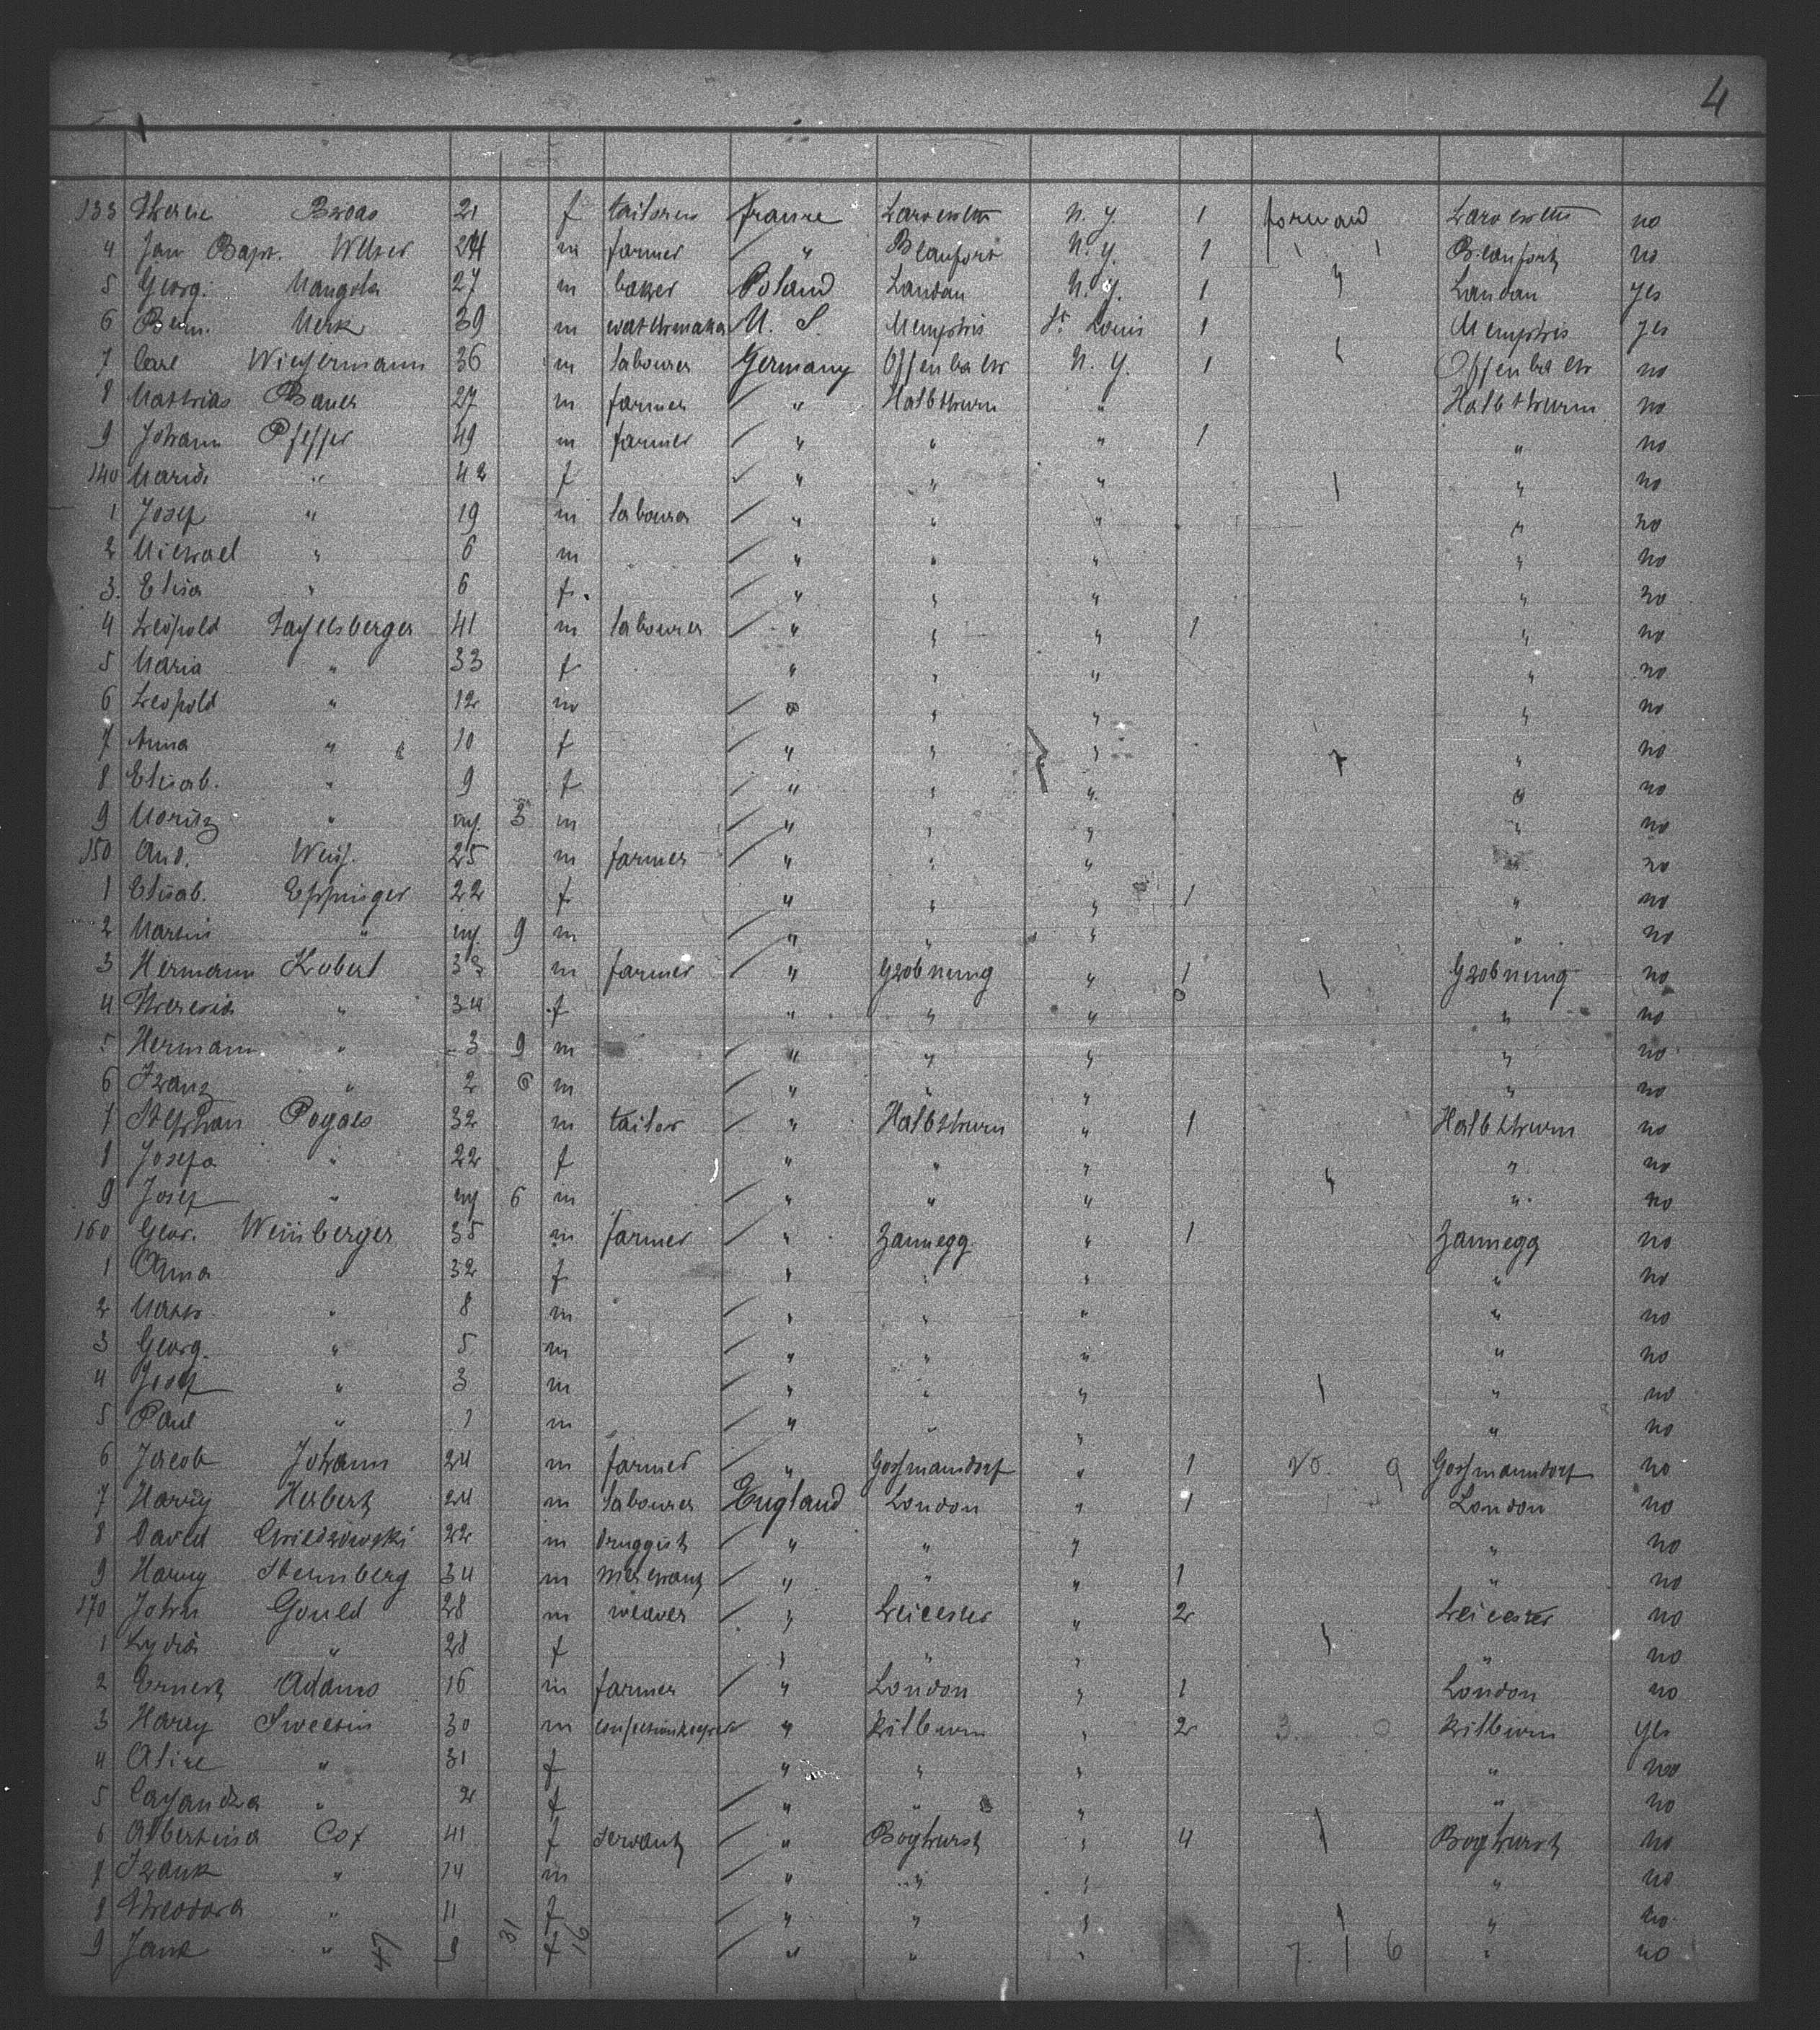 4
133 Broas 21 f france N. y. 1 forward no
4 Jan Bapt. Welter 24 m farmer " Beaufort N. y. 1 Beaufort no
5 Georg. 27 m baker Poland Landau N. y. 1 Landau yes
6 Merk 39 m U. S. Memphis St Louis 1 Memphis yes
7 Carl 36 m labourer Germany Offenbach N. y. 1 Offenbach no
8 Mathias Bauer 27 m farmer " Halbthurn " Halbthurn no
9 Johann Pfeffer 49 m farmer " " " 1 " no
140 Maria " 42 f " " " " no
1 Josef " 19 m labourer " " " " no
2 Michael " 6 m " " " " no
3. Elisa " 6 f. " " " " no
4 Leopold 41 m labourer " " " 1 " no
5 Maria " 33 f " " " " no
6 Leopold " 12 m " " " " no
7 Anna " 10 f " " " " no
8 Elisab. " 9 f " " " " no
9 Moritz " inf. 3 m " " " " no
150 And. Weiss. 25 m farmer " " " " no
1 Elisab. Eppinger 22 f " " " 1 " no
2 Martin " inf. 9 m " " " " no
3 Hermann Kobert m farmer " " 1 no
4 Theresia " 34 f " " " " no
5 Hermann " 3 9 m " " " " no
6 Franz " 2 6 m " " " " no
7 Stephan 32 m tailor " Halbthurn " 1 Halbthurn no
8 Josefa " 22 f " " " " no
9 Josef " inf 6 m " " " " no
160 Geor. Weinberger 35 m farmer " Zannegg " 1 Zannegg no
1 Anna " 32 f " " " " no
2 Math. " 8 m " " " " no
3 Georg. " 5 m " " " " no
4 Josef " 3 m " " " " no
5 Paul " 1 m " " " " no
6 Jacob Johann 24 m farmer " Gossmannsdorf " 1 20. 9 Gossmanndorf no
7 Harry Herbert 24 m labourer England London " 1 London no
8 David 22 m druggist " " " " no
9 Harry Sternberg 34 m merchant " " " 1 " no
170 John Gould 28 m weaver " Leicester " 2 Leicester no
1 Lydia " 28 f " " " " no
2 Ernest Adams 16 m farmer " London " 1 London no
3 Harry 30 m " Kilburn " 2 3. 0 Kilburn yes
4 Alice " 31 f " " " " no
5 " 2 f " " " " no
6 Albertina Cox 41 f servant " " 4 no
7 Frank " 14 m " " " " no
8 Theodora " 11 f " " " " no
9 Jane " 47 9 31 f 16 " " " 7. 1 6 " no